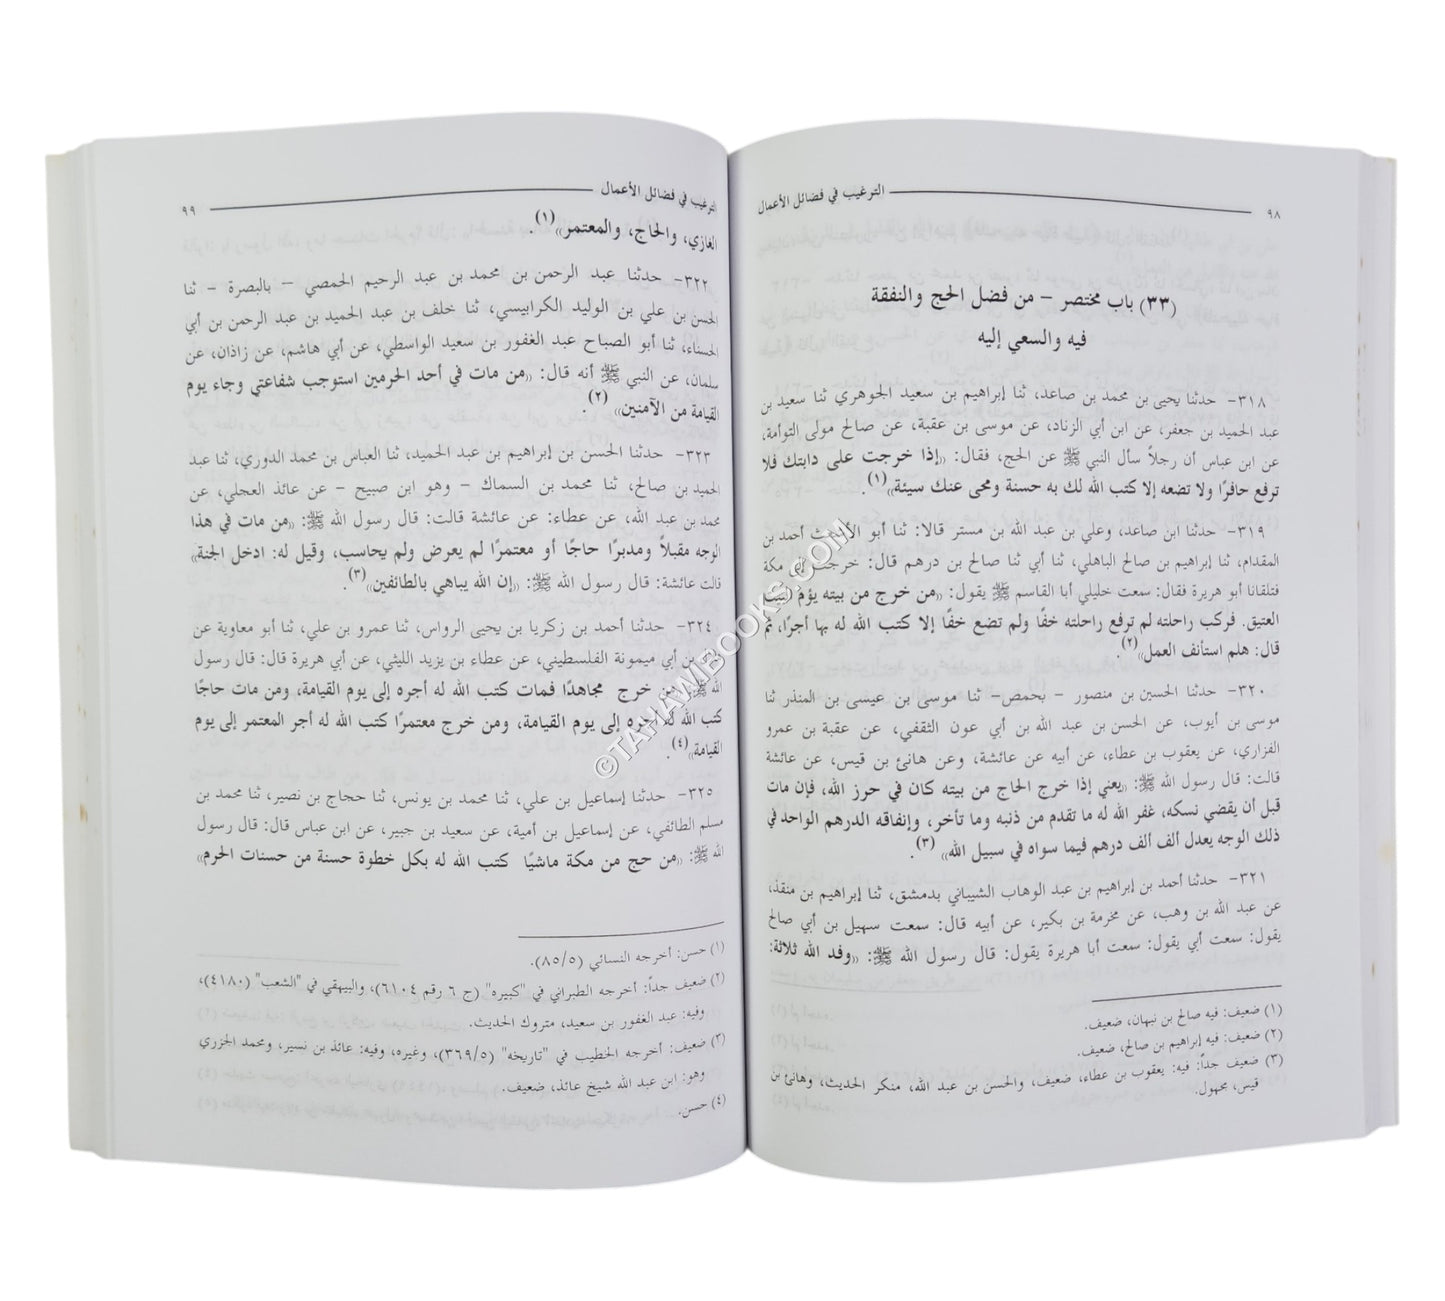 ٩٨ الترغيب في فضائل الأعمال
(٣٣) باب مختصر – من فضل الحج والنفقة
فيه والسعي إليه
٣١٨- حدثنا يحيى بن محمد بن صاعد، ثنا إبراهيم بن سعيد الجوهري ثنا سعيد بن
عبد الحميد بن جعفر، عن ابن أبي الزناد، عن موسى بن عقبة، عن صالح مولى التوأمة،
عن ابن عباس أن رجلاً سأل النبي ﷺ عن الحج، فقال: «إذا خرجت على دابتك فلا
ترفع حافرًا ولا تضعه إلا كتب الله لك به حسنة ومحى عنك سيئة»(١).
٣١٩- حدثنا ابن صاعد، وعلي بن عبد الله بن مستر قالا: ثنا أبو الأشعث أحمد بن
المقدام، ثنا إبراهيم بن صالح الباهلي، ثنا أبي ثنا صالح بن درهم قال: خرجت إلى مكة
فتلقانا أبو هريرة فقال: سمعت خليلي أبا القاسم ﷺ يقول: «من خرج من بيته يؤم البيت
العتيق. فركب راحلته لم ترفع راحلته خفًا ولم تضع خفًا إلا كتب الله له بها أجرًا، ثم
قال: هلم استأنف العمل»(٢).
٣٢٠- حدثنا الحسين بن منصور – بحمص– ثنا موسى بن عيسى بن المنذر ثنا
موسى بن أيوب، عن الحسن بن عبد الله بن أبي عون الثقفي، عن عقبة بن عمرو
الفزاري، عن يعقوب بن عطاء، عن أبيه عن عائشة، وعن هانئ بن قيس، عن عائشة
قالت: قال رسول الله ﷺ: «يعني إذا خرج الحاج من بيته كان في حرز الله، فإن مات
قبل أن يقضي نسكه، غفر الله له ما تقدم من ذنبه وما تأخر، وإنفاقه الدرهم الواحد في
ذلك الوجه يعدل ألف ألف درهم فيما سواه في سبيل الله» (٣).
٣٢١- حدثنا أحمد بن إبراهيم بن عبد الوهاب الشيباني بدمشق، ثنا إبراهيم بن منقذ،
عن عبد الله بن وهب، عن مخرمة بن بكير، عن أبيه قال: سمعت سهيل بن أبي صالح
يقول: سمعت أبي يقول: سمعت أبا هريرة يقول: قال رسول الله ﷺ: «وفد الله ثلاثة:
(١) ضعيف: فيه صالح بن نبهان، ضعيف.
(٢) ضعيف: فيه إبراهيم بن صالح، ضعيف.
(٣) ضعيف جداً: فيه: يعقوب بن عطاء، ضعيف، والحسن بن عبد الله، منكر الحديث، وهانئ بن
قيس، مجهول.
الترغيب في فضائل الأعمال ٩٩
الغازي، والحاج، والمعتمر»(١).
٣٢٢- حدثنا عبد الرحمن بن محمد بن عبد الرحيم الحمصي – بالبصرة – ثنا
الحسن بن علي بن الوليد الكرابيسي، ثنا خلف بن عبد الحميد بن عبد الرحمن بن أبي
الحسناء، ثنا أبو الصباح عبد الغفور بن سعيد الواسطي، عن أبي هاشم، عن زاذان، عن
سلمان، عن النبي ﷺ أنه قال: «من مات في أحد الحرمين استوجب شفاعتي وجاء يوم
القيامة من الآمنين» (٢).
٣٢٣- حدثنا الحسن بن إبراهيم بن عبد الحميد، ثنا العباس بن محمد الدوري، ثنا عبد
الحميد بن صالح، ثنا محمد بن السماك – وهو ابن صبيح – عن عائذ العجلي، عن
محمد بن عبد الله، عن عطاء: عن عائشة قالت: قال رسول الله ﷺ: «من مات في هذا
الوجه مقبلاً ومدبرًا حاجًا أو معتمرًا لم يعرض ولم يحاسب، وقيل له: ادخل الجنة»
قالت عائشة: قال رسول الله ﷺ: «إن الله يباهي بالطائفين»(٣).
٣٢٤- حدثنا أحمد بن زكريا بن يحيى الرواس، ثنا عمرو بن علي، ثنا أبو معاوية عن
بن أبي ميمونة الفلسطيني، عن عطاء بن يزيد الليثي، عن أبي هريرة قال: قال رسول
الله ﷺ: «من خرج مجاهدًا فمات كتب الله له أجره إلى يوم القيامة، ومن مات حاجًا
كتب الله له أجره إلى يوم القيامة، ومن خرج معتمرًا كتب الله له أجر المعتمر إلى يوم
القيامة»(٤).
٣٢٥- حدثنا إسماعيل بن علي، ثنا محمد بن يونس، ثنا حجاج بن نصير، ثنا محمد بن
مسلم الطائفي، عن إسماعيل بن أمية، عن سعيد بن جبير، عن ابن عباس قال: قال رسول
الله ﷺ: «من حج من مكة ماشيًا كتب الله له بكل خطوة حسنة من حسنات الحرم»
(١) حسن: أخرجه النسائي (٨٥/٥).
(٢) ضعيف جداً: أخرجه الطبراني في "كبيره" (ج ٦ رقم ٦١٠٤)، والبيهقي في "الشعب" (٤١٨٠)،
وفيه: عبد الغفور بن سعيد، متروك الحديث.
(٣) ضعيف: أخرجه الخطيب في "تاريخه" (٣٦٩/٥)، وغيره، وفيه: عائذ بن نسير، ومحمد الجزري
وهو: ابن عبد الله شيخ عائذ، ضعيف.
(٤) حسن.
©TAHAWIBOOKS.COM